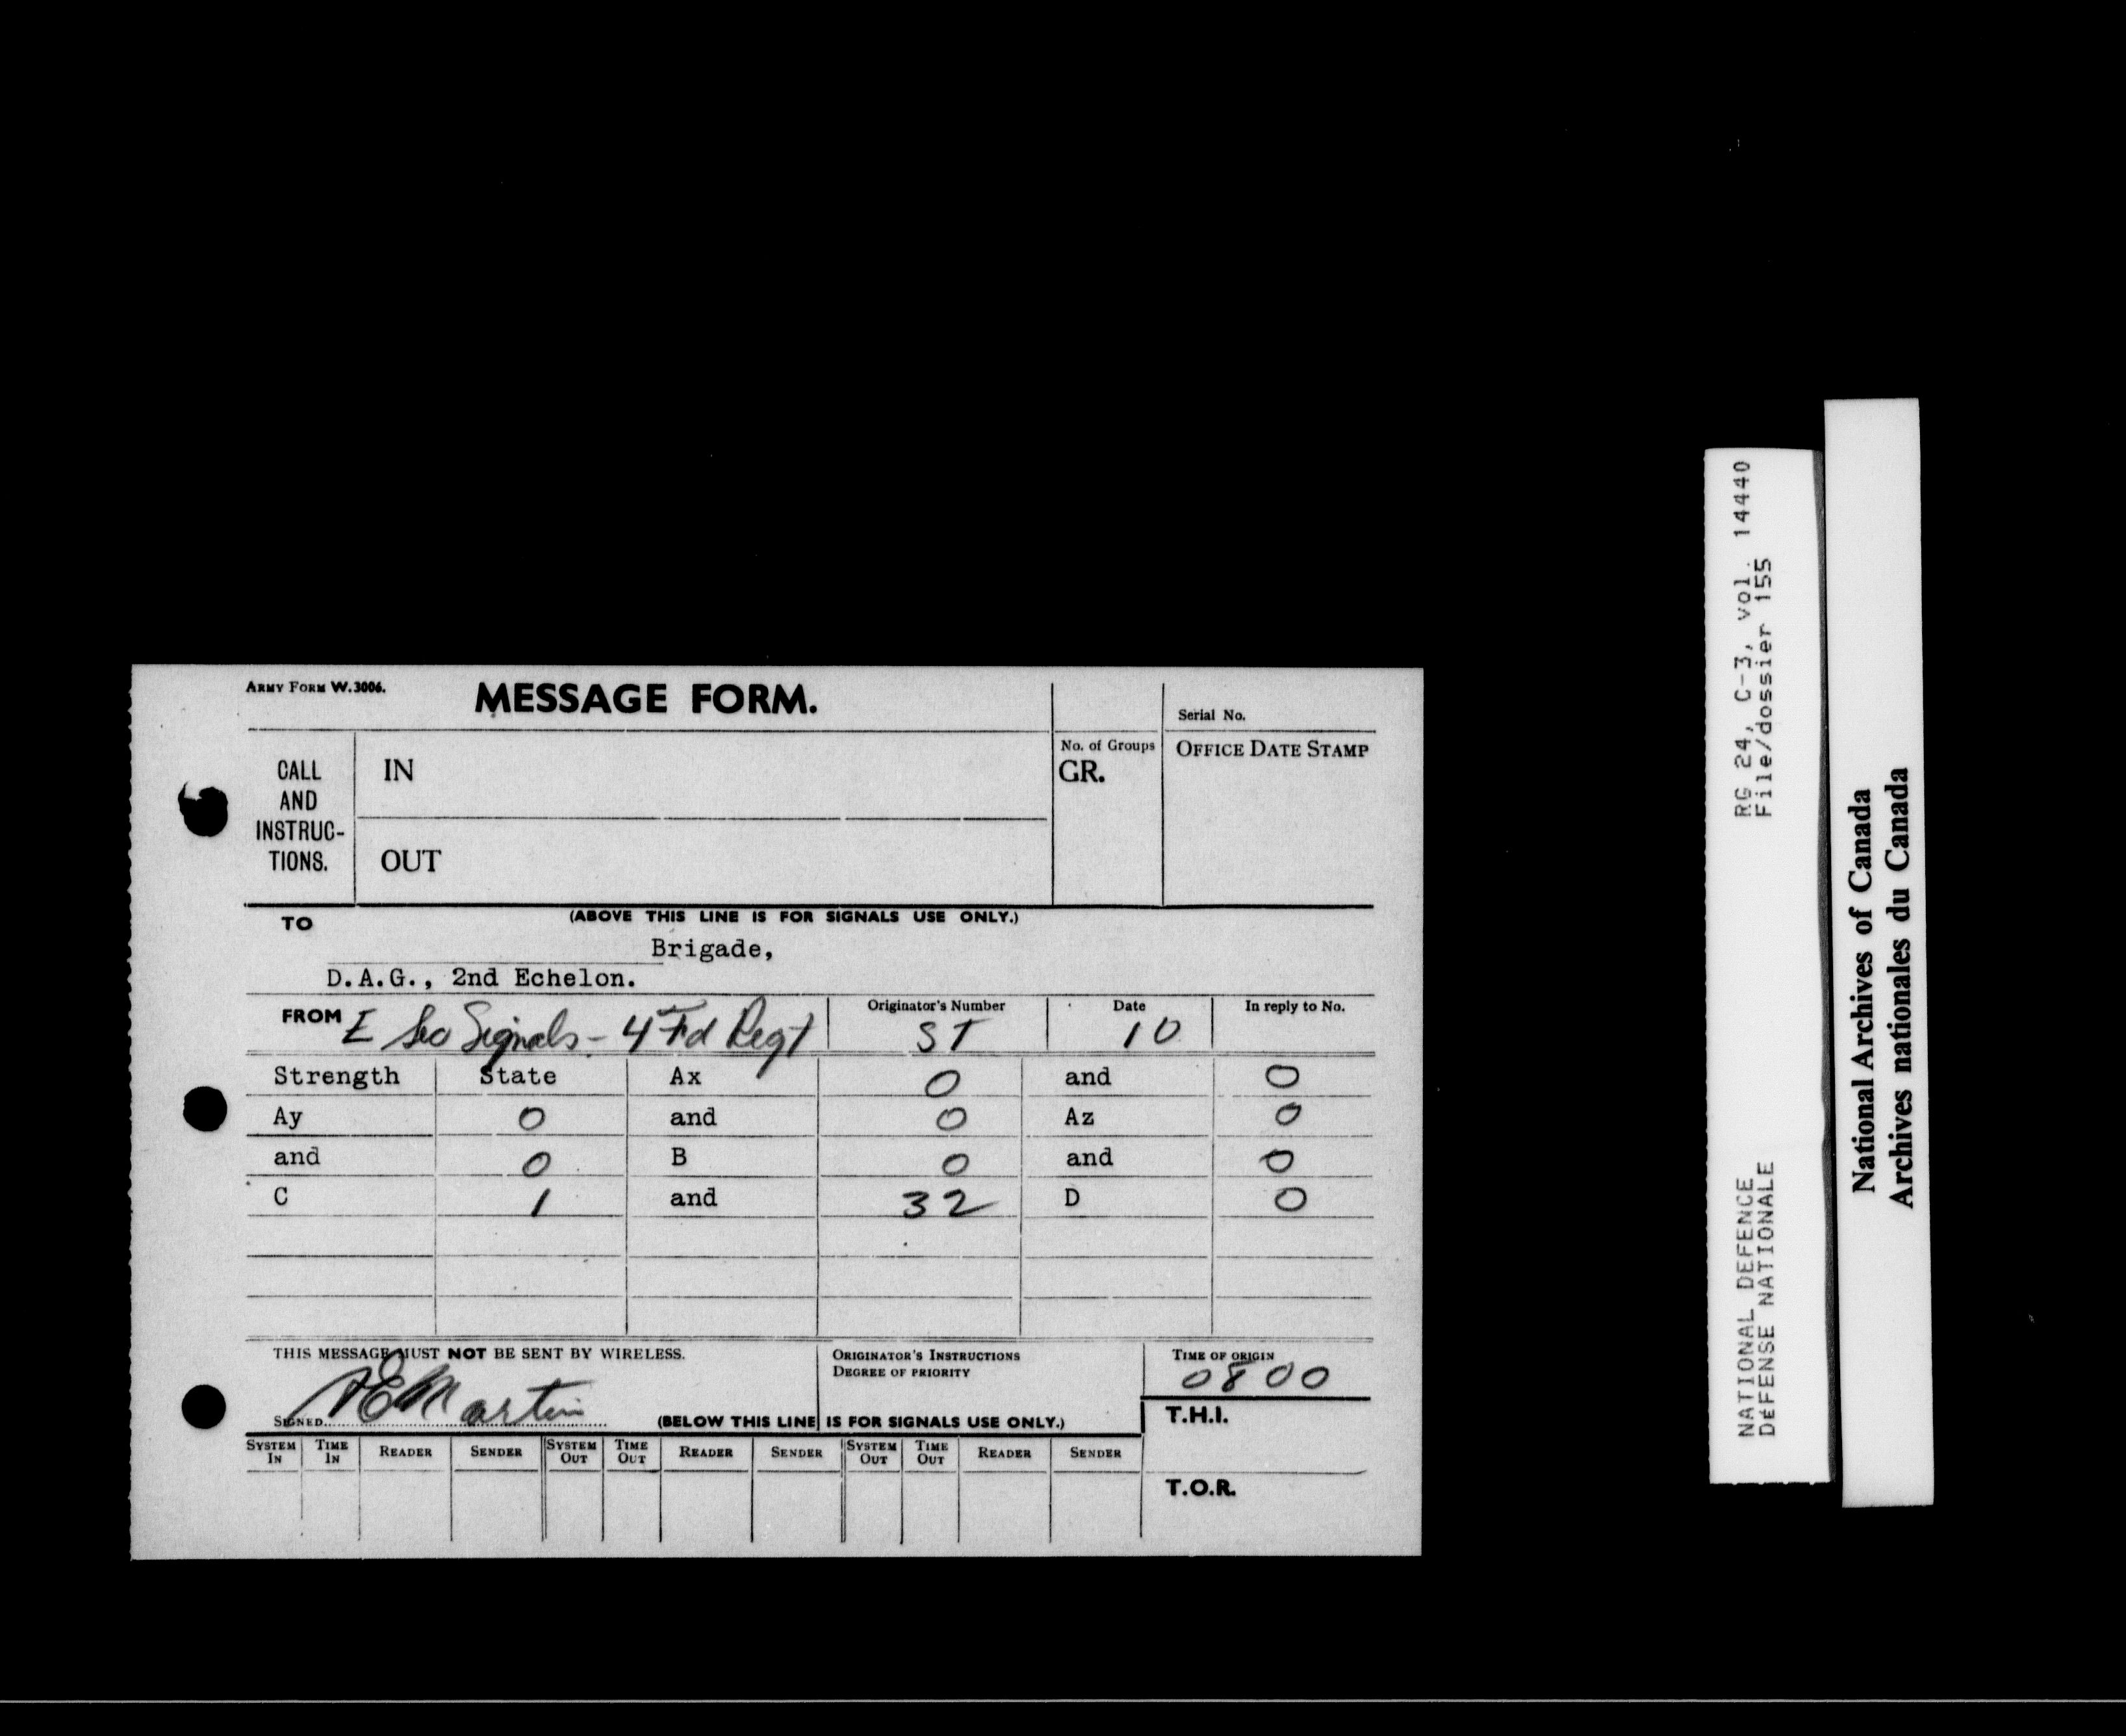 ARMY FORM W.3006.
MESSAGE FORM.
Serial No.
CALL AND INSTRUC-TIONS.
IN
No. of Groups
GR.
OFFICE DATE STAMP
OUT
(ABOVE THIS LINE IS FOR SIGNALS USE ONLY.)
TO
Brigade,
D.A.G., 2nd Echelon.
FROM E Sec Signals - 4 Fd Regt
Originator's Number
ST
Date
10
In reply to No.
Strength State Ax 0 and 0
Ay 0 and 0 Az 0
and 0 B 0 and 0
C 1 and 32 D 0
THIS MESSAGE MUST NOT BE SENT BY WIRELESS.
ORIGINATOR'S INSTRUCTIONS
DEGREE OF PRIORITY
TIME OF ORIGIN
0800
SIGNED Martin
(BELOW THIS LINE IS FOR SIGNALS USE ONLY.)
T.H.I.
SYSTEM IN TIME IN READER SENDER SYSTEM OUT TIME OUT READER SENDER SYSTEM OUT TIME OUT READER SENDER
T.O.R.
RG 24, C-3, vol. 14440
File/dossier 155
NATIONAL DEFENCE
DÉFENSE NATIONALE
National Archives of Canada
Archives nationales du Canada